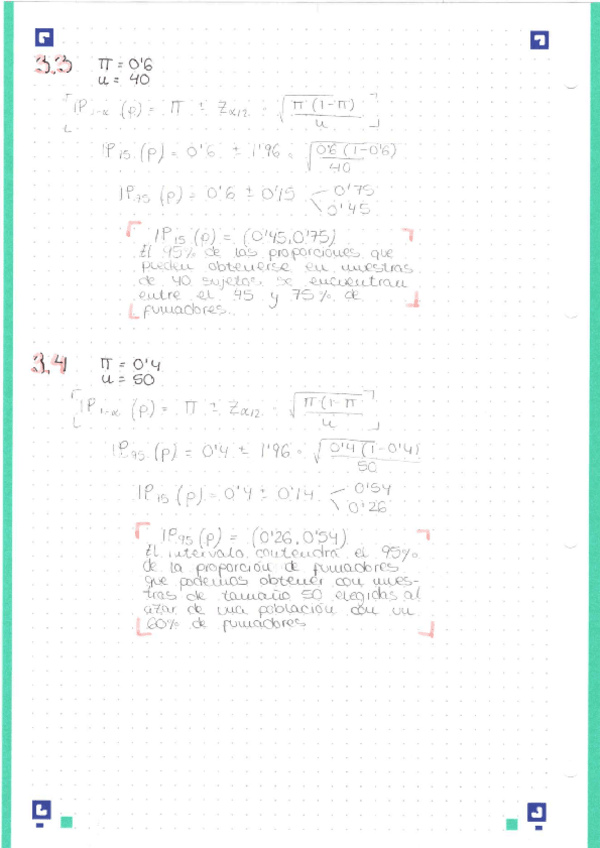 3.3 π = 0'6
n = 40
IP₁₋α (p) = π ± Zα/2 · √(π (1-π) / n)
IP₉₅ (p) = 0'6 ± 1'96 · √(0'6 (1-0'6) / 40)
IP₉₅ (p) = 0'6 ± 0'15 0'75
0'45
IP₉₅ (p) = (0'45, 0'75)
El 95% de las proporciones que
pueden obtenerse en muestras
de 40 sujetos se encuentran
entre el 45 y 75% de
fumadores.
3.4 π = 0'4
n = 50
IP₁₋α (p) = π ± Zα/2 · √(π (1-π / n)
IP₉₅ (p) = 0'4 ± 1'96 · √(0'4 (1-0'4) / 50)
IP₉₅ (p) = 0'4 ± 0'14 0'54
0'26
IP₉₅ (p) = (0'26, 0'54)
El intervalo contendrá el 95%
de la proporción de fumadores
que podemos obtener con mues-
tras de tamaño 50 elegidas al
azar de una población con un
60% de fumadores